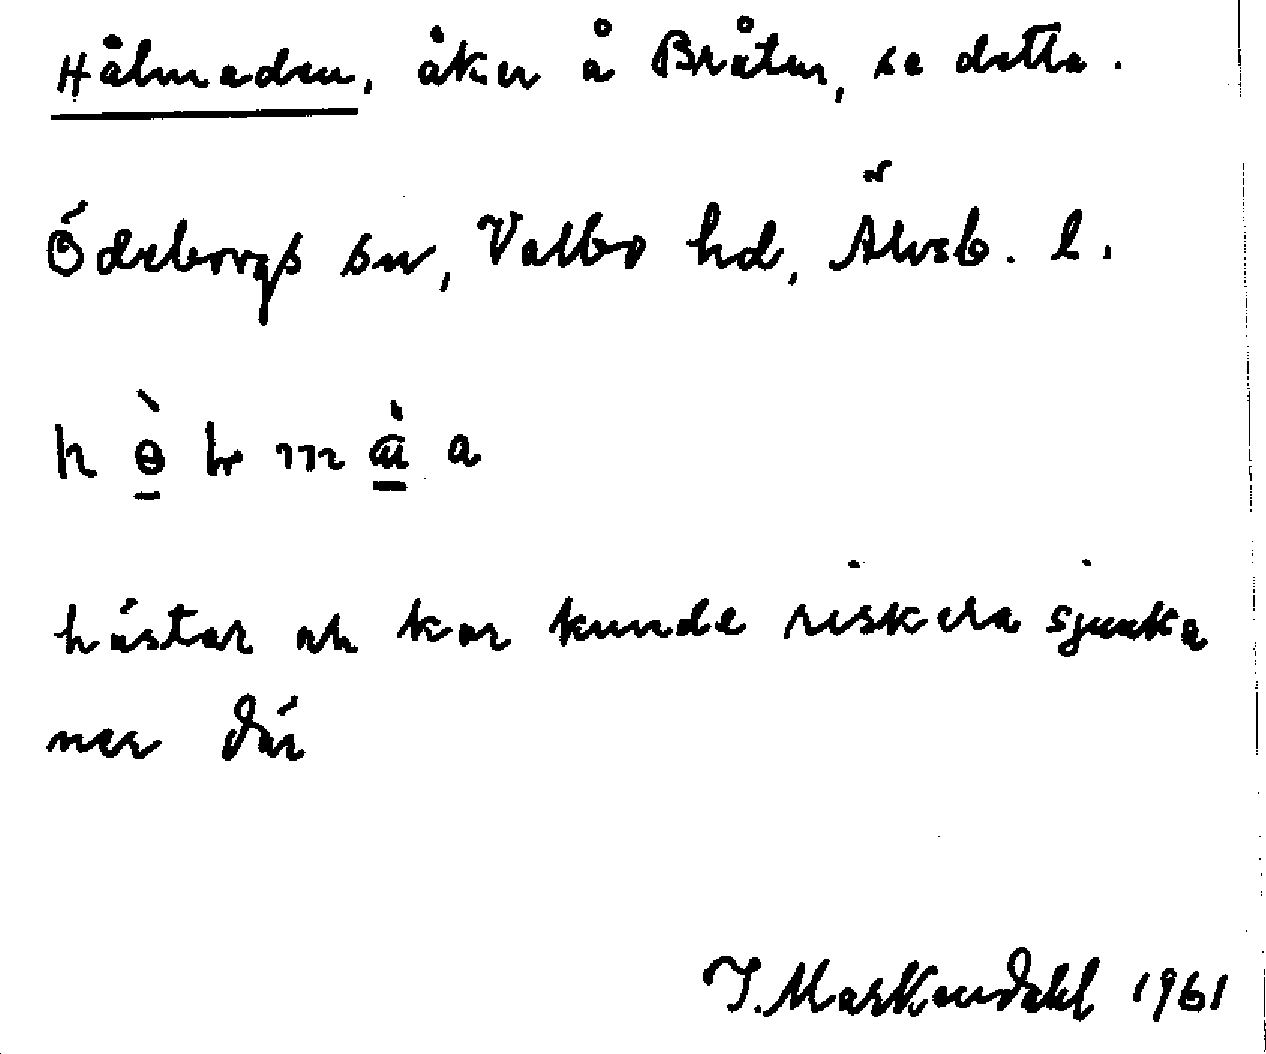 Hålmaden, åker å Bråten, se detta.
Ödeborgs sn, Valbo hd, Älvsb. l.
hästar ok kor kunde riskera sjunka
ner där
I. Markendahl 1961